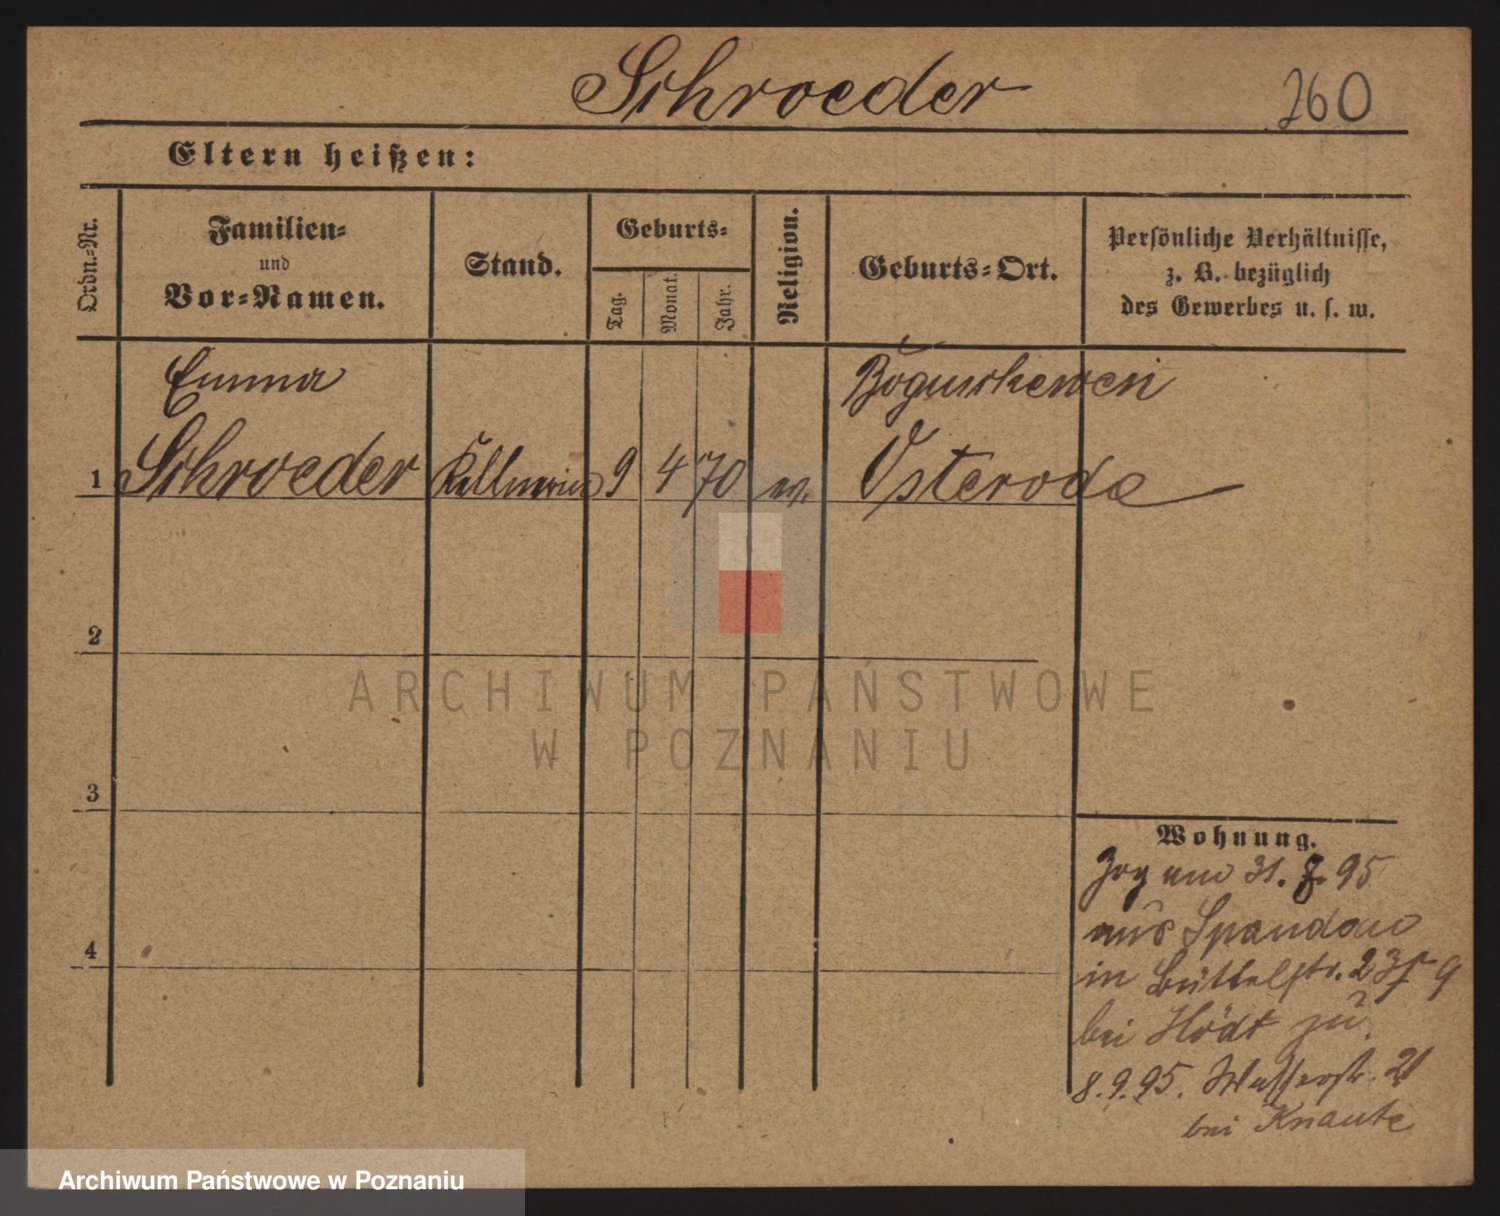 Schroeder 260
Eltern heißen:
Ordn.-Nr.
Familien-
und
Vor-Namen.
Stand.
Geburts-
Tag.
Monat.
Jahr.
Religion.
Geburts-Ort.
Persönliche Verhältnisse,
z. B. bezüglich
des Gewerbes u. s. w.
Emma
1 Schroeder Kellnerin 9 4 70
Osterode
2
ARCHIWUM PAŃSTWOWE
W POZNANIU
3
Wohnung.
Zog am 31. 8. 95
aus Spandau
in Büttelstr. 23
bei Hödt zu.
8.9.95. Wasserstr. 21
bei Knaute
4
Archiwum Państwowe w Poznaniu